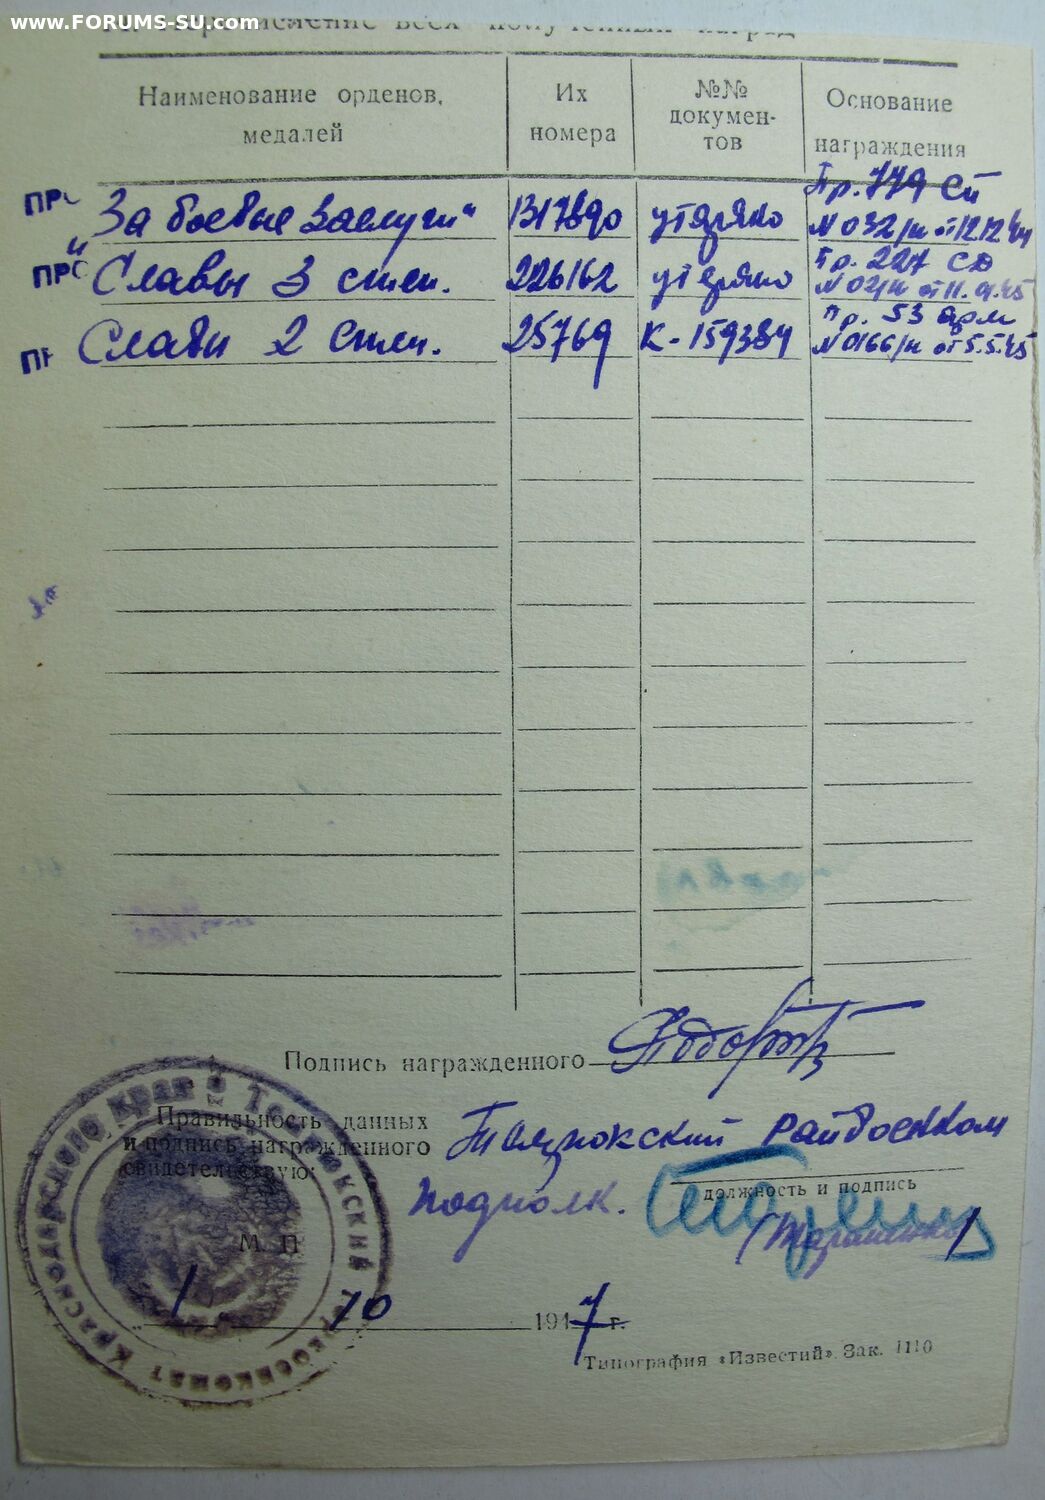 www.FORUMS-SU.com
всех полученных наград
Наименование орденов, медалей
Их номера
№№ докумен-тов
Основание награждения
ПРО
„За боевые заслуги“ 1317890 утеряно Пр. 779 СП
№ 032/н от 12.12.44
ПРО
Славы 3 степ. 226162 утеряно Пр. 227 СД
№ 02/н от 11.9.45
ПР
Славы 2 степ. 25769 К-159384 Пр. 53 арм
№ 0166/н от 5.5.45
Подпись награжденного
Правильность данных
и подпись награжденного
свидетельствую:
Темрюкский райвоенком
должность и подпись
подполк.
М П
1 10 1947 г.
Типография «Известий». Зак. 1110
Краснодарского края